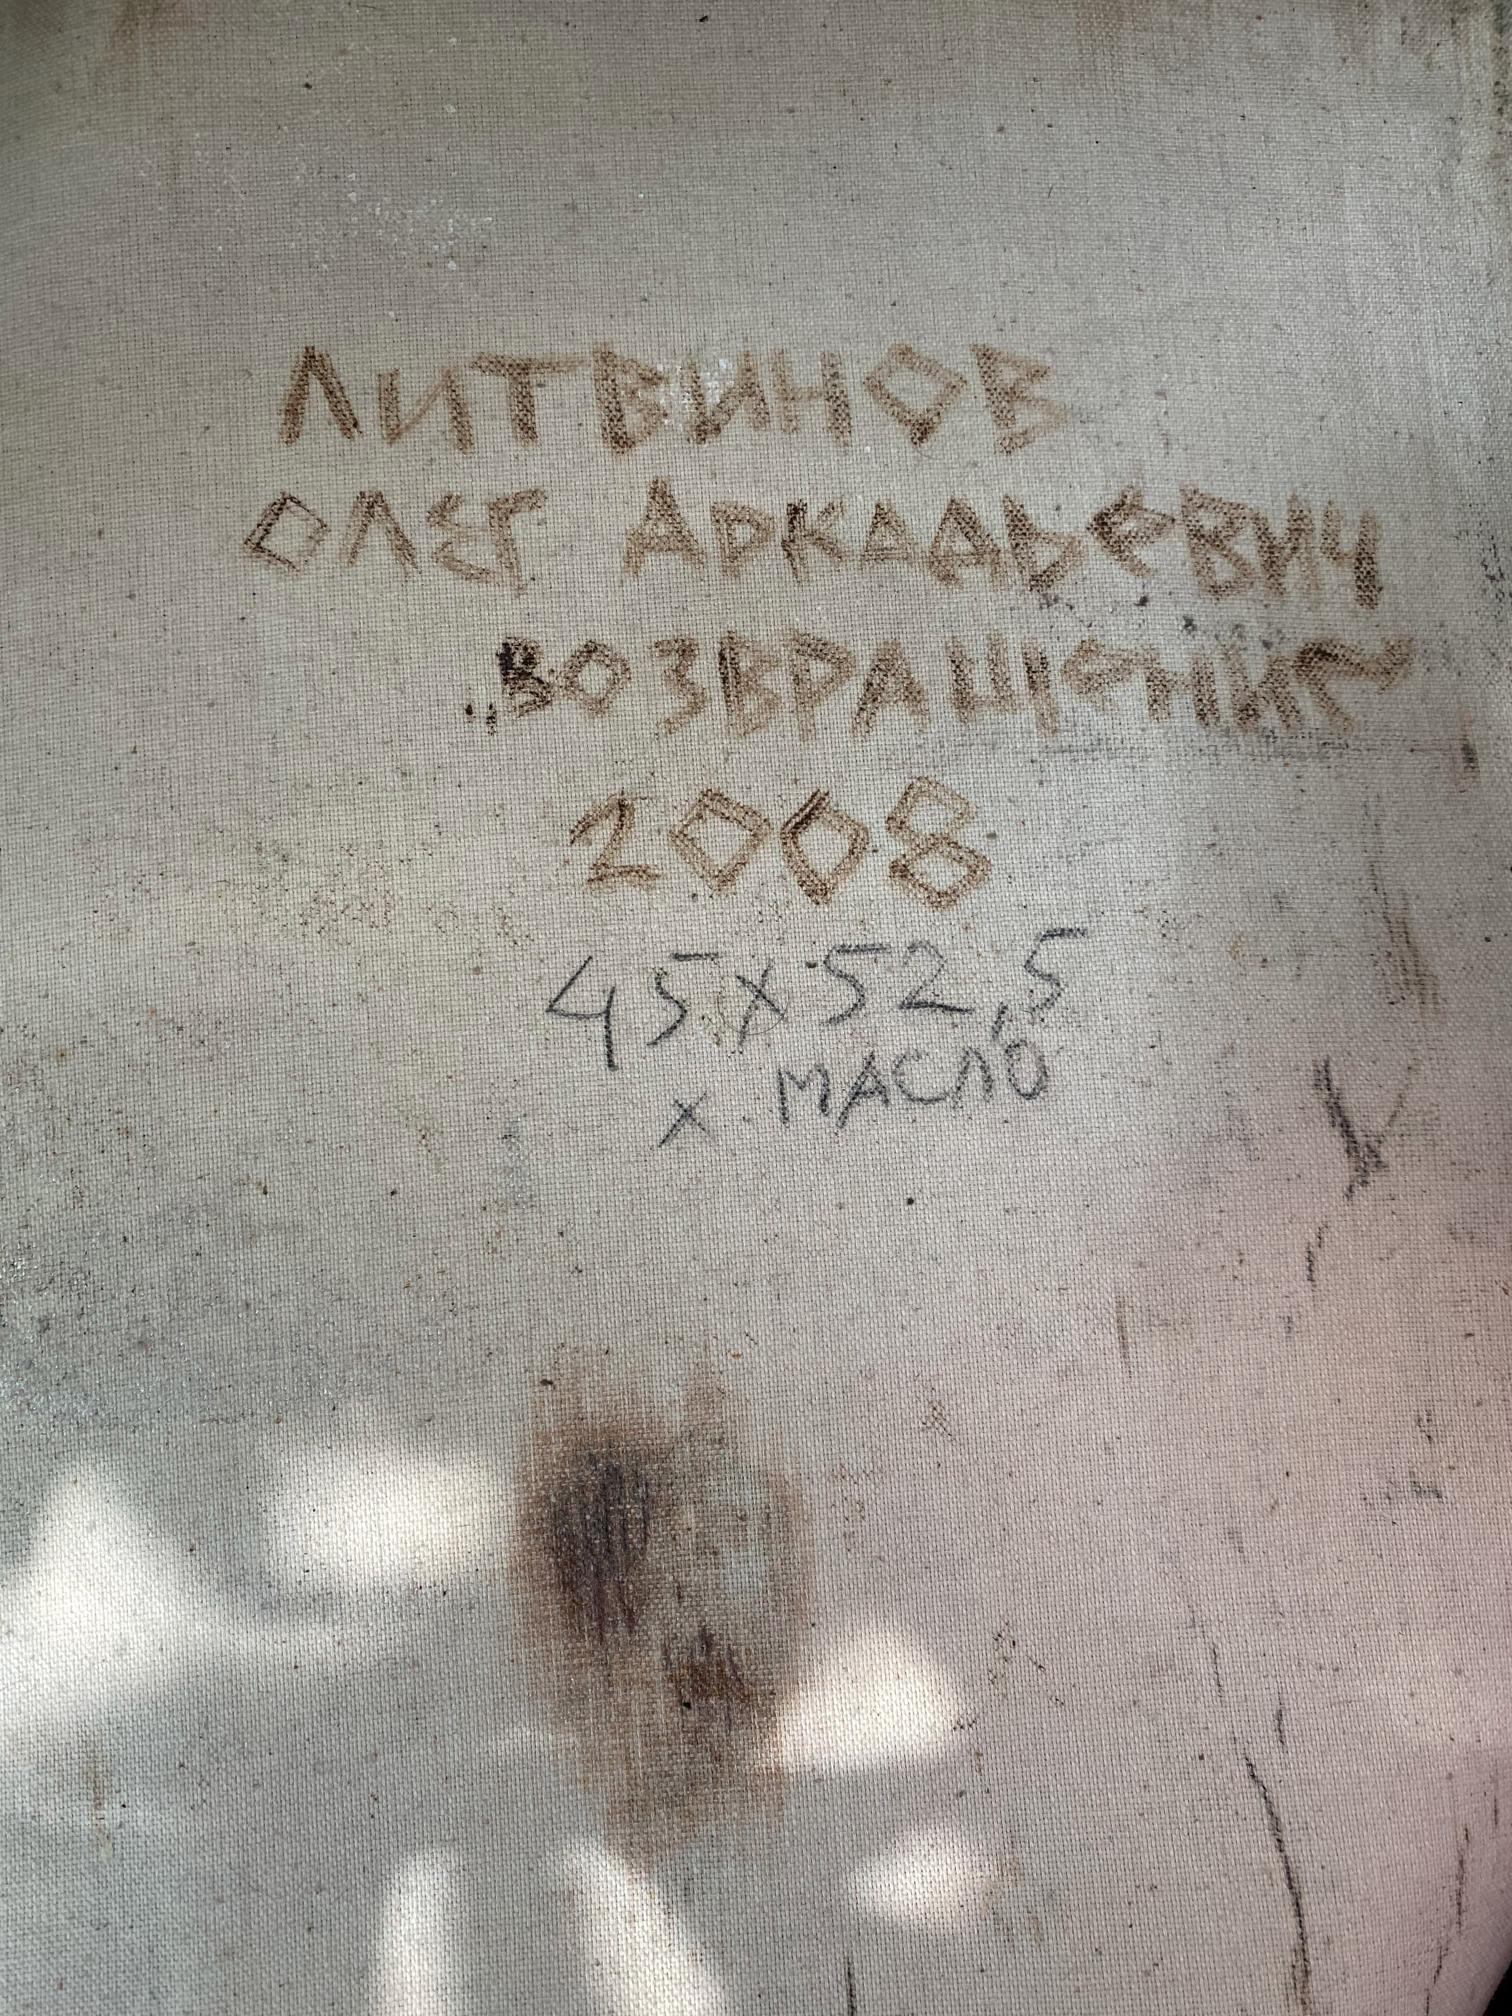 ЛИТВИНОВ
ОЛЕГ АРКАДЬЕВИЧ
„ВОЗВРАЩЕНИЕ"
2008
45х52,5
х. МАСЛО